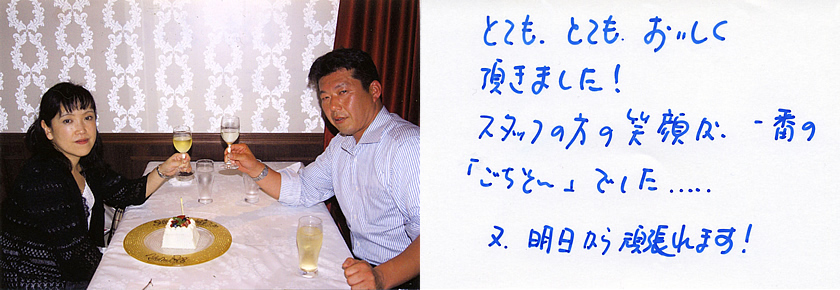 とても、とても おいしく
頂きました！
スタッフの方の笑顔が、一番の
「ごちそう」でした.....
又、明日から頑張れます！